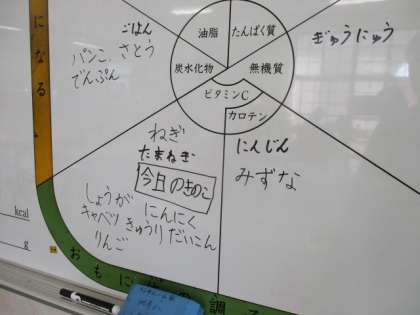 になる
ごはん
パンこ さとう
でんぷん
油脂
たんぱく質
炭水化物
無機質
ビタミンC
カロテン
ぎゅうにゅう
ねぎ
たまねぎ
今日のきのこ
しょうが
にんにく
キャベツ
きゅうり
だいこん
りんご
にんじん
みずな
kcal
g
おもに
調